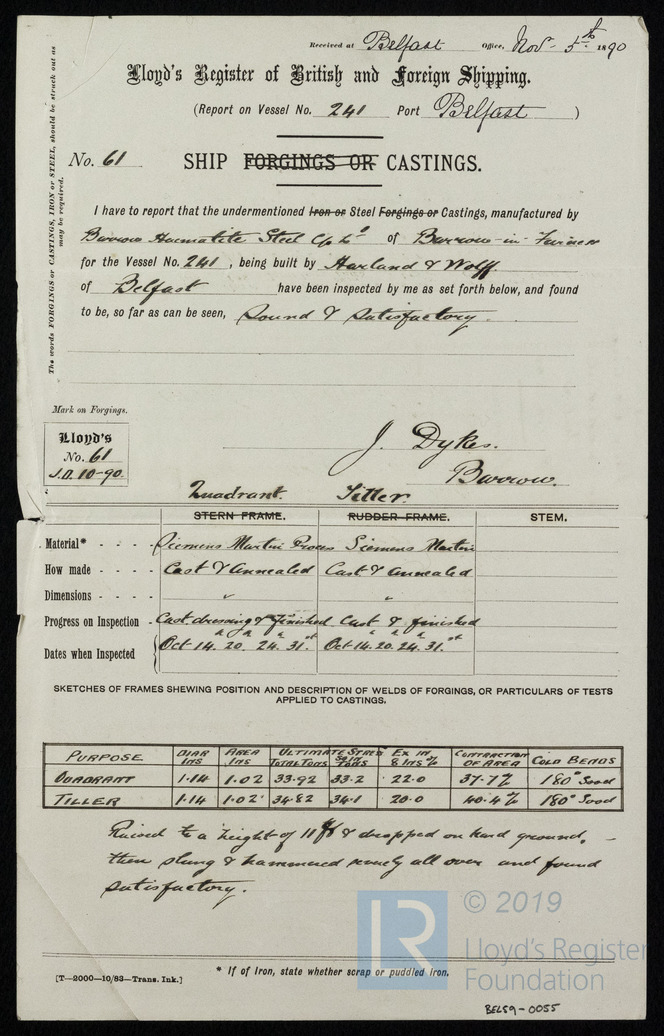 Received at Belfast Office, Nov 5th 1890
Lloyd's Register of British and Foreign Shipping.
(Report on Vessel No. 241 Port Belfast )
No. 61 SHIP FORGINGS OR CASTINGS.
The words FORGINGS or CASTINGS, IRON or STEEL, should be struck out as may be required.
I have to report that the undermentioned Iron or Steel Forgings or Castings, manufactured by
Barrow Haematite Steel Co Ld of Barrow-in-Furness
for the Vessel No. 241 , being built by Harland & Wolff
of Belfast have been inspected by me as set forth below, and found
to be, so far as can be seen, Sound & Satisfactory.
Mark on Forgings.
Lloyd's
No. 61
J.D. 10-90.
J. Dykes.
Barrow.
Quadrant. Tiller.
STERN FRAME. RUDDER FRAME. STEM.
Material* - - - - Siemens Martin Process Siemens Martin
How made - - - - Cast & Annealed Cast & Annealed
Dimensions - - - - " "
Progress on Inspection - Cast dressing & finished Cast & finished
Dates when Inspected Oct 14. 20. 24. 31.st Oct 14. 20. 24. 31.st
SKETCHES OF FRAMES SHEWING POSITION AND DESCRIPTION OF WELDS OF FORGINGS, OR PARTICULARS OF TESTS
APPLIED TO CASTINGS.
PURPOSE DIAR INS AREA INS ULTIMATE STRES TOTAL TONS SQ IN TONS EX IN 8 INS % CONTRACTION OF AREA COLD BENDS
QUADRANT 1.14 1.02 33.92 33.2 22.0 37.7% 180° Good
TILLER 1.14 1.02 34.82 34.1 20.0 40.4% 180° Good
Raised to a height of 11 ft & dropped on hard ground,
then slung & hammered all over and found
satisfactory.
© 2019
LR Lloyd's Register
Foundation
* If of Iron, state whether scrap or puddled iron.
[T—2000—10/83—Trans. Ink.]
BEL59-0055